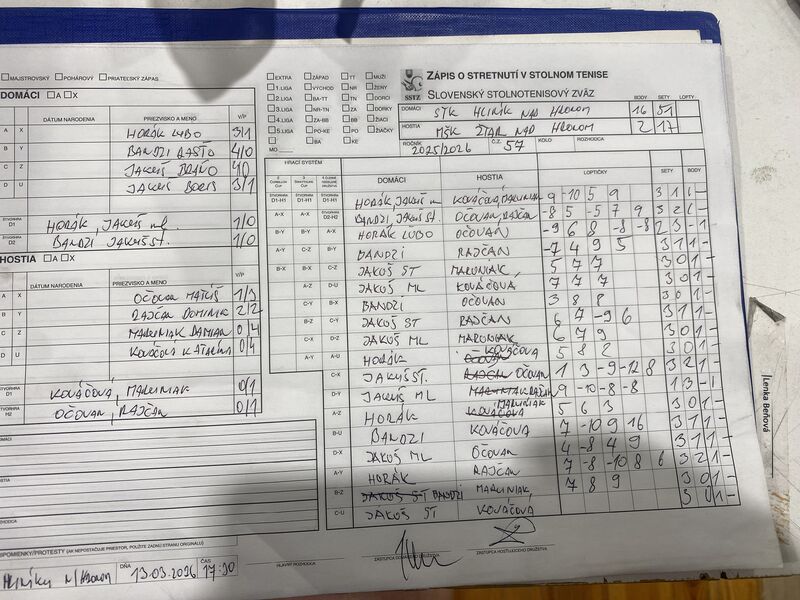 MAJSTROVSKÝ POHÁROVÝ PRIATEĽSKÝ ZÁPAS
DOMÁCI A X
DÁTUM NARODENIA PRIEZVISKO A MENO V/P
A X HORÁK ĽUBO 3/1
B Y BANDZI RASŤO 4/0
C Z JAKUŠ 4/0
D U JAKUŠ BORIS 3/1
ŠTVORHRA D1 HORÁK, JAKUŠ ml. 1/0
ŠTVORHRA D2 BANDZI JAKUŠ ST. 1/0
HOSTIA A X
DÁTUM NARODENIA PRIEZVISKO A MENO V/P
A X OČOVAN MATÚŠ 1/3
B Y RAJČAN DOMINIK 2/2
C Z MARUNIAK DAMIAN 0/4
D U KOVÁČOVÁ KATARÍNA 0/4
ŠTVORHRA D1 KOVÁČOVÁ, MARUNIAK 0/1
ŠTVORHRA H2 OČOVAN, RAJČAN 0/1
DOMÁCI
HOSTIA
ROZHODCA
PRIPOMIENKY/PROTESTY (AK NEPOSTAČUJE PRIESTOR, POUŽITE ZADNÚ STRANU ORIGINÁLU)
DŇA 13.03.2026 ČAS 17:30
EXTRA ZÁPAD TT MUŽI
1.LIGA VÝCHOD NR ŽENY
2.LIGA BA-TT TN DORCI
3.LIGA NR-TN ZA DORKY
4.LIGA ZA-BB BB ŽIACI
5.LIGA PO-KE PO ŽIAČKY
BA KE
MO
SSTZ
ZÁPIS O STRETNUTÍ V STOLNOM TENISE
SLOVENSKÝ STOLNOTENISOVÝ ZVÄZ
BODY SETY LOPTY
DOMÁCI STK HLINÍK NAD HRONOM 16 51
HOSTIA MŠK ŽIAR NAD HRONOM 2 17
ROČNÍK 2025/2026 Č.Z. 57 KOLO ROZHODCA
HRACÍ SYSTÉM
DOMÁCI HOSTIA LOPTIČKY SETY BODY
ŠTVORHRA D1-H1 HORÁK, JAKUŠ ml KOVÁČOVÁ, MARUNIAK 9 -10 5 9 3 1 1 -
A-X BANDZI, JAKUŠ ST. OČOVAN, RAJČAN -8 5 -5 7 9 3 2 1 -
B-Y HORÁK ĽUBO OČOVAN -9 6 8 -8 -8 2 3 - 1
A-Y C-Z B-Y BANDZI RAJČAN -7 4 9 5 3 1 1 -
B-X B-X C-Z JAKUŠ ST MARUNIAK 5 7 7 3 0 1 -
A-Z D-U JAKUŠ ML KOVÁČOVÁ 7 7 7 3 0 1 -
C-Y B-X BANDZI OČOVAN 3 8 8 3 0 1 -
B-Z C-Y JAKUŠ ST RAJČAN 6 7 -9 6 3 1 1 -
C-X D-Z JAKUŠ ML MARUNIAK 6 7 9 3 0 1 -
A-Y A-U HORÁK KOVÁČOVÁ 5 8 2 3 0 1 -
C-X JAKUŠ ST. OČOVAN 1 3 -9 -12 8 3 2 1 -
D-Y JAKUŠ ML RAJČAN 9 -10 -8 -8 1 3 - 1
A-Z HORÁK MARUNIAK 5 6 3 3 0 1 -
B-U BANDZI KOVÁČOVÁ 7 -10 9 16 3 1 1 -
D-X JAKUŠ ML OČOVAN 4 -8 4 9 3 1 1 -
A-Y HORÁK RAJČAN 7 -8 -10 8 6 3 2 1 -
B-Z BANDZI MARUNIAK 7 8 9 3 0 1 -
C-U JAKUŠ ST KOVÁČOVÁ 3 0 1 -
HLAVNÝ ROZHODCA ZÁSTUPCA DOMÁCEHO DRUŽSTVA ZÁSTUPCA HOSŤUJÚCEHO DRUŽSTVA
Lenka Beňová